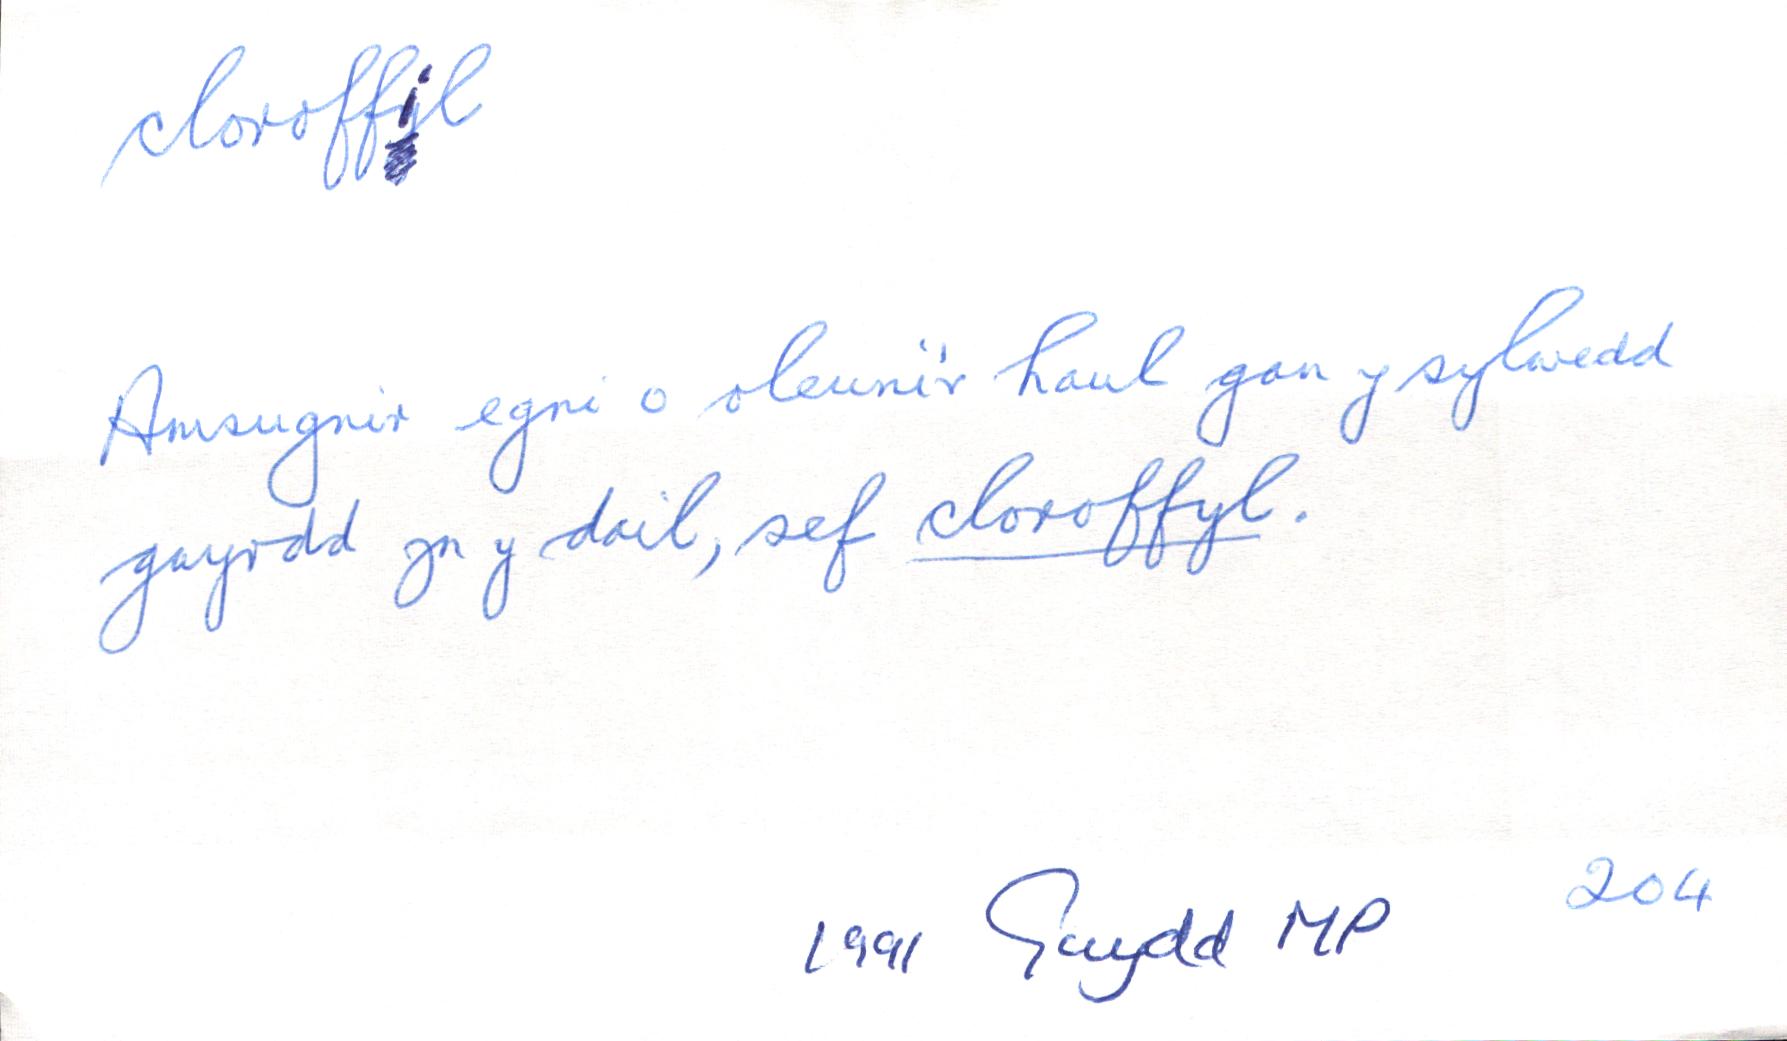 cloroffil
Amsugnir egni o oleuni'r haul gan y sylwedd
gwyrdd yn y dail, sef cloroffyl.
204
1991 Gwydd MP